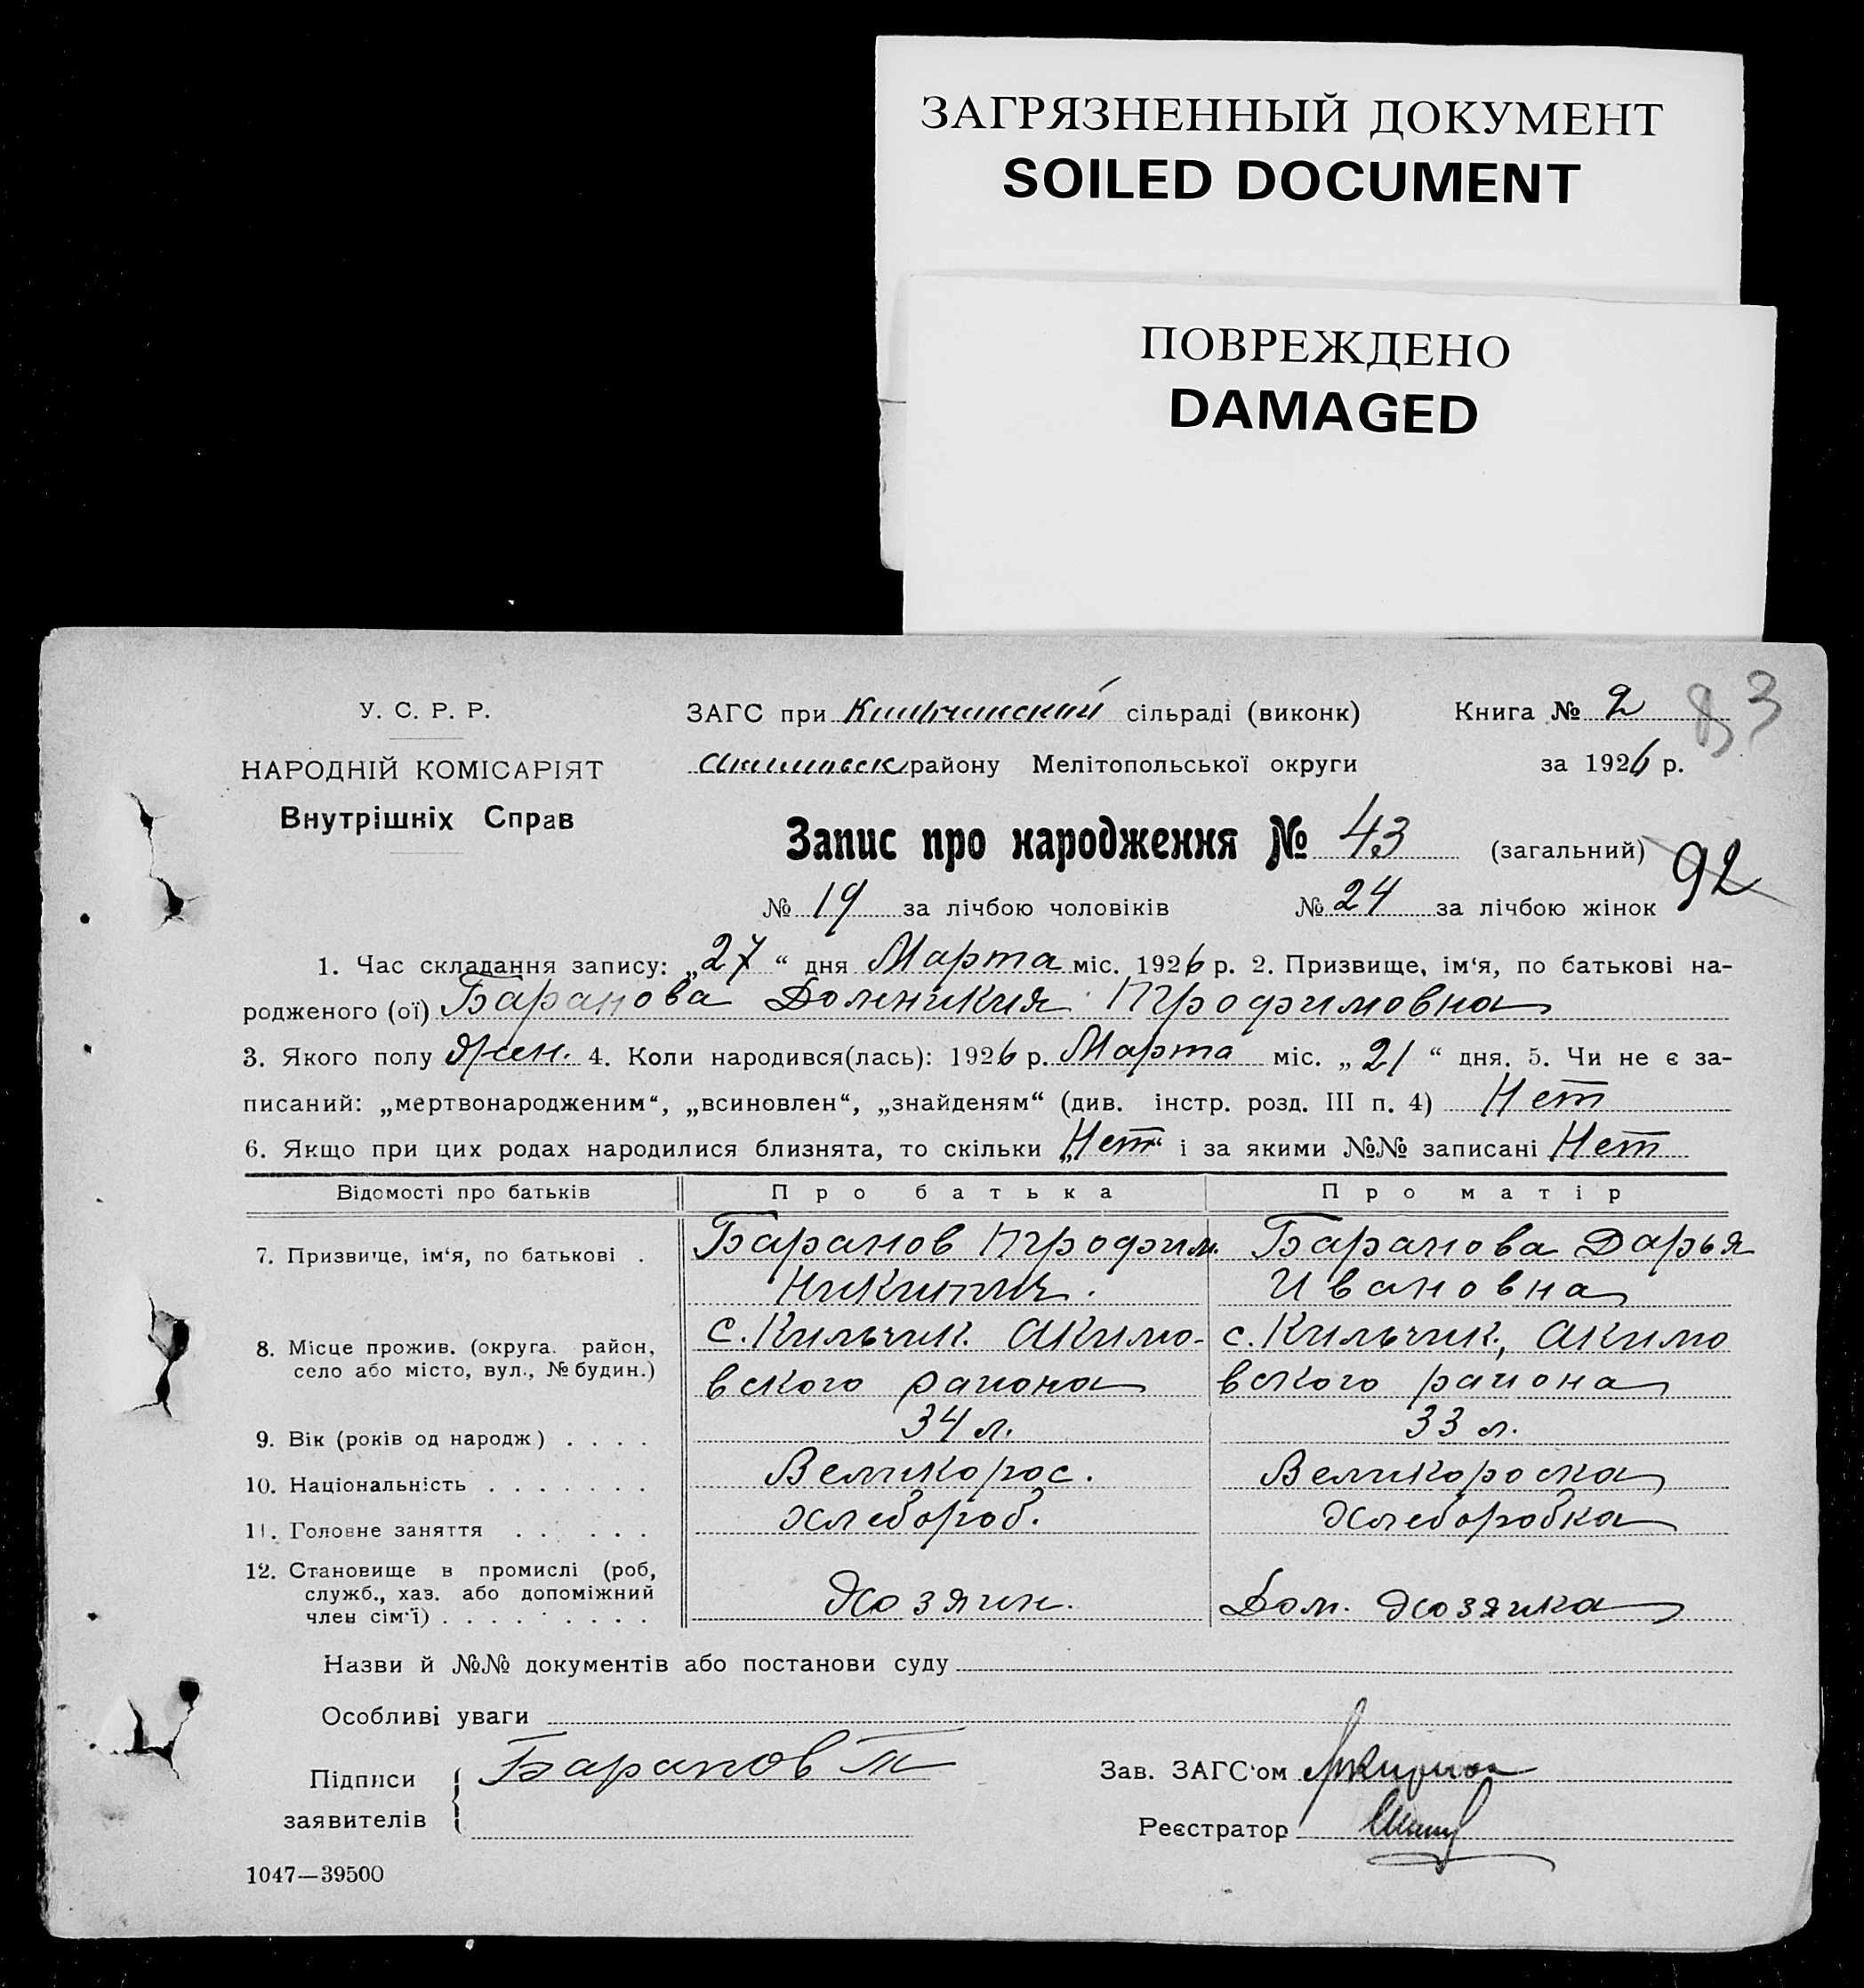 ЗАГРЯЗНЕННЫЙ ДОКУМЕНТ
SOILED DOCUMENT
ПОВРЕЖДЕНО
DAMAGED
У. С. Р. Р.
НАРОДНІЙ КОМІСАРІЯТ
Внутрішніх Справ
ЗАГС при Кильчикский сільраді (виконк) Книга № 2 83
району Мелітопольської округи за 1926 р.
Запис про народження № 43 (загальний) 92
№ 19 за лічбою чоловіків № 24 за лічбою жінок
1. Час складання запису: „27“ дня Марта міс. 1926 р. 2. Призвище, ім‘я, по батькові на-
родженого (ої) Баранова Домникия Трофимовна
3. Якого полу жен. 4. Коли народився(лась): 1926 р. Марта міс. „21“ дня. 5. Чи не є за-
писаний: „мертвонародженим“, „всиновлен“, „знайденям“ (див. інстр. розд. III п. 4) Нет
6. Якщо при цих родах народилися близнята, то скільки „Нет“ і за якими №№ записані Нет
Відомості про батьків Про батька Про матір
7. Призвище, ім‘я, по батькові . Баранов Трофим. Баранова Дарья
Никитич. Ивановна
8. Місце прожив. (округа. район, с. Кильчик. Акимо- с. Кильчик, Акимо
село або місто, вул., № будин.) вского района вского района
9. Вік (років од народж) . . . . 34 л. 33 л.
10. Національність . . . . . . . Великорос. Великороска
11. Головне заняття . . . . . . хлебороб. хлеборобка
12. Становище в промислі (роб,
служб., хаз. або допоміжний Хозяин. Дом. хозяйка
член сім‘ї) . . . . . . . . .
Назви й №№ документів або постанови суду
Особливі уваги
Підписи Баранов Т Зав. ЗАГС‘ом
заявителів Реєстратор
1047—39500